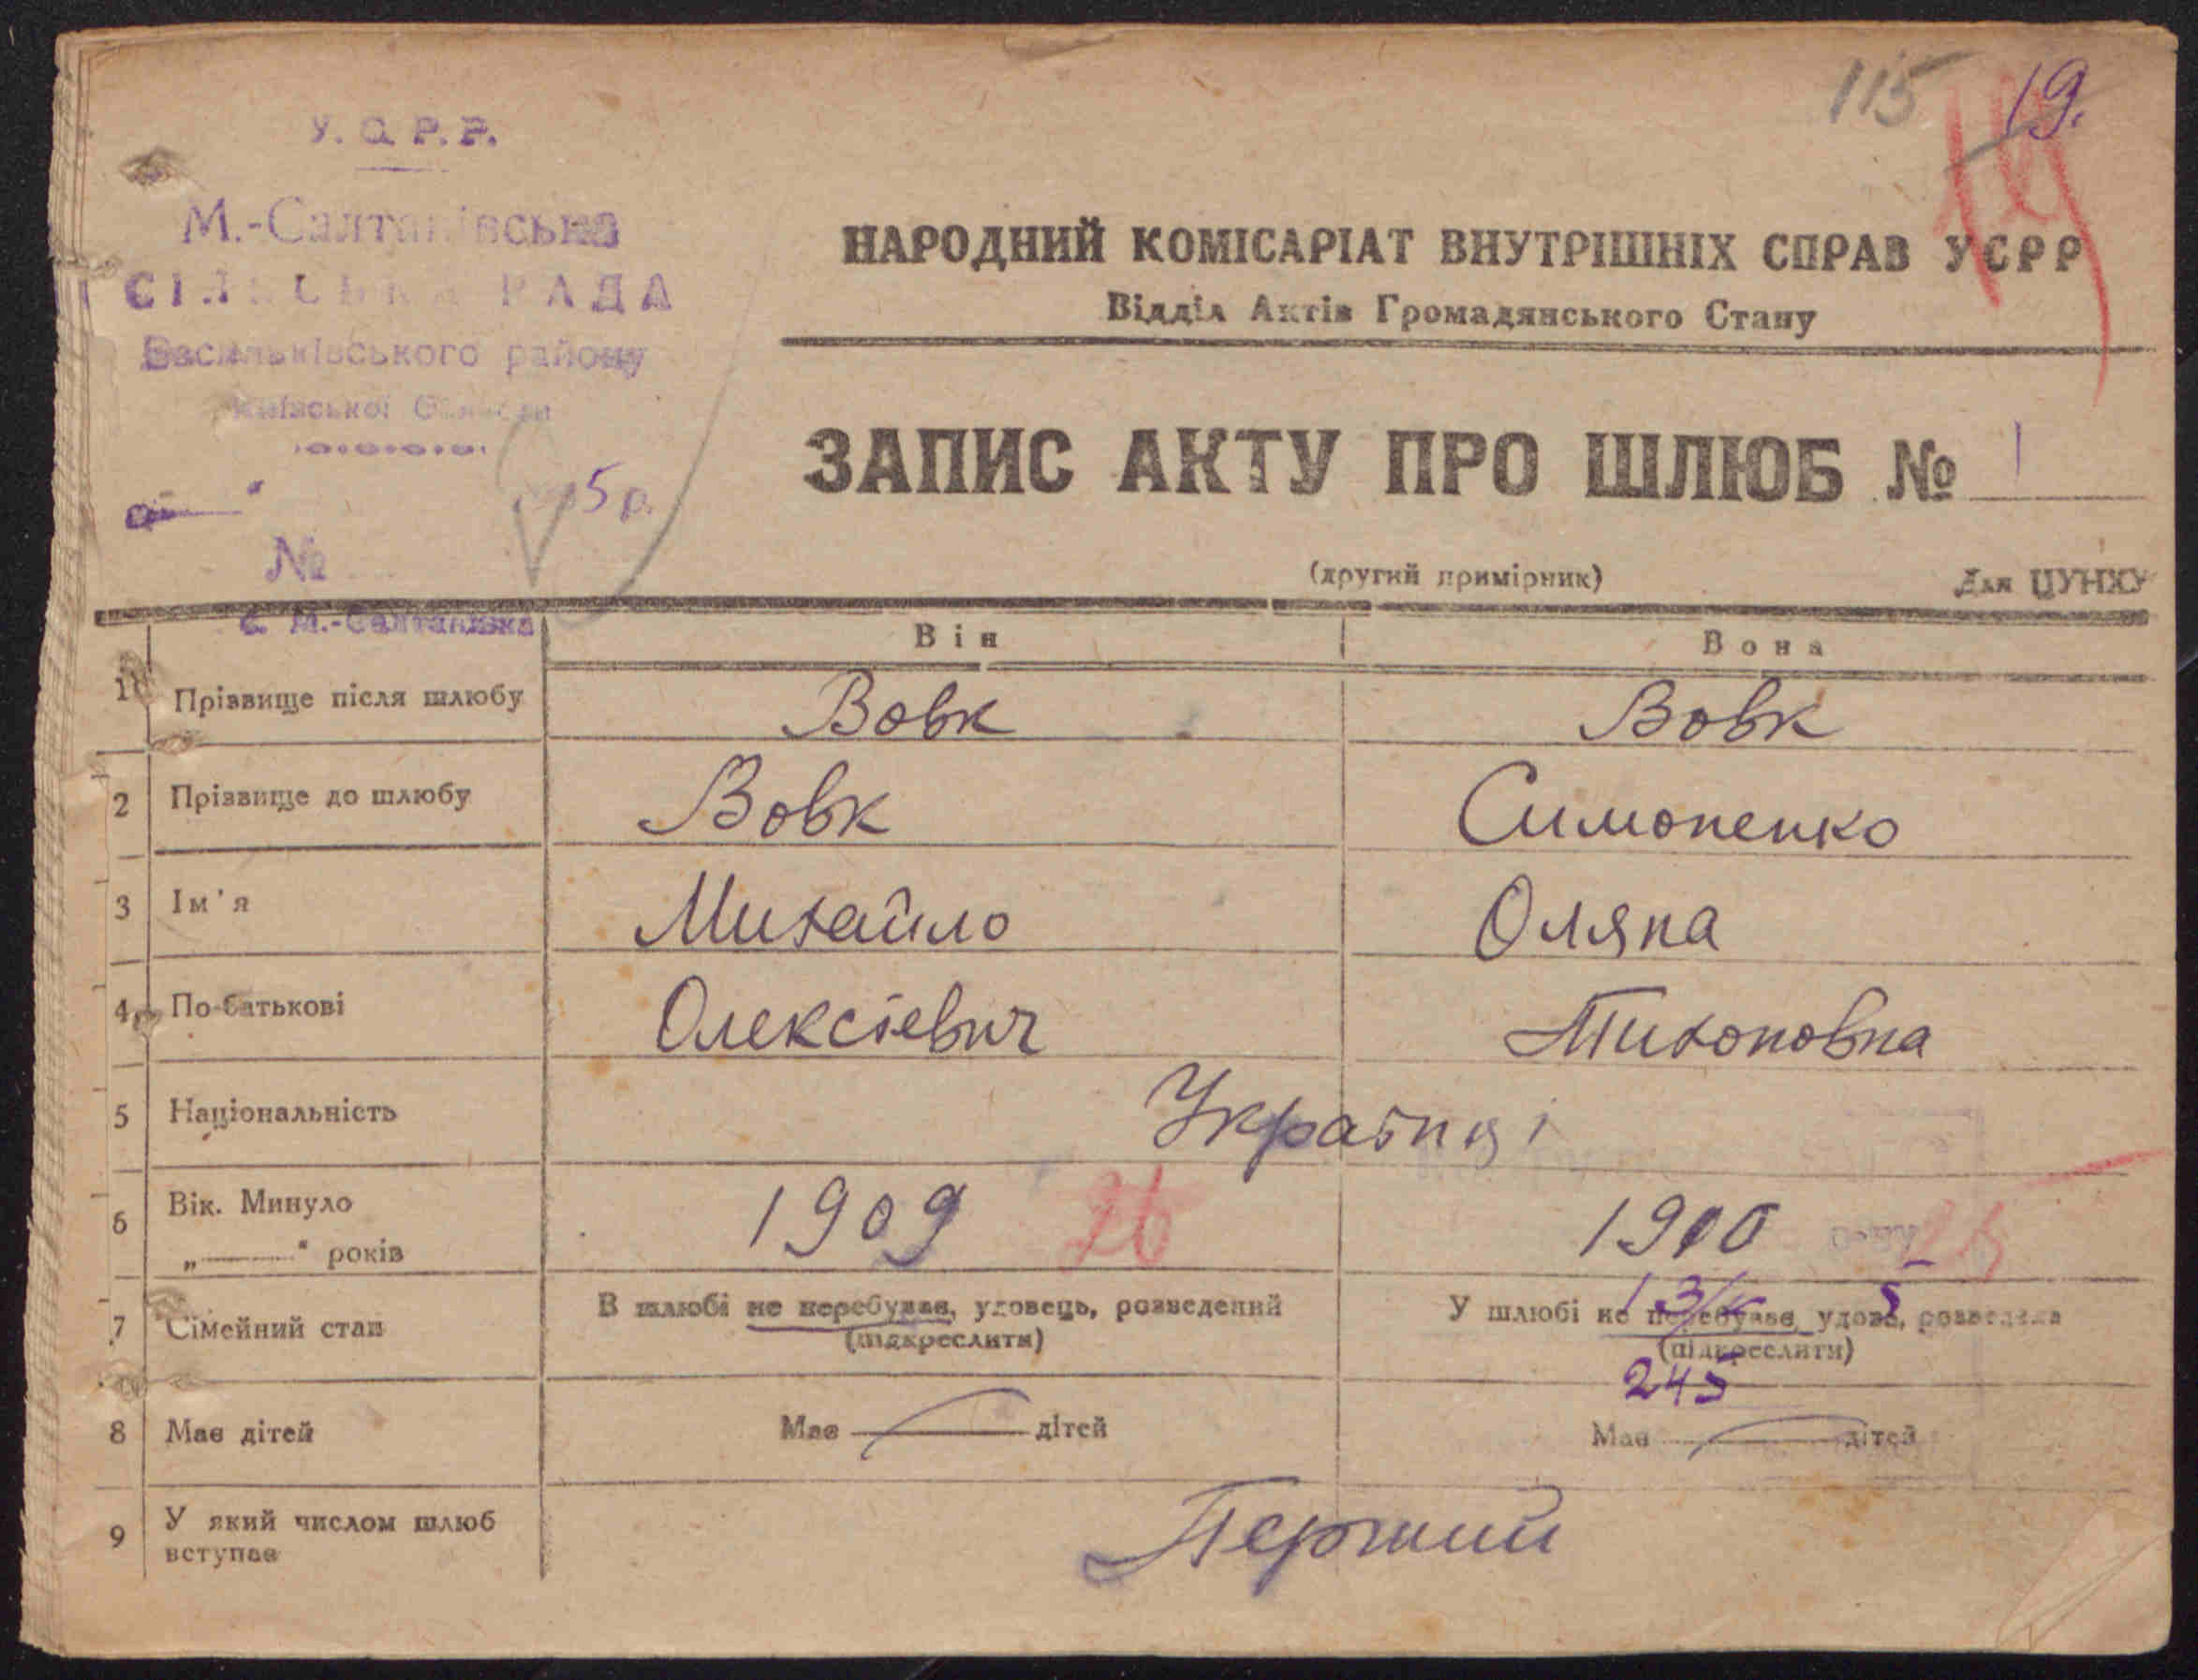 115 19.
У. С. Р. Р.
М.-Салтанівська
СІЛЬСЬКА РАДА
Васильківського району
Київської Области
5 р.
№
с. М.-Салтанівка
НАРОДНИЙ КОМІСАРІАТ ВНУТРІШНІХ СПРАВ УСРР
Відділ Актів Громадянського Стану
ЗАПИС АКТУ ПРО ШЛЮБ № 1
(другий примірник) Для ЦУНХУ
Він Вона
1 Прізвище після шлюбу Вовк Вовк
2 Прізвище до шлюбу Вовк Симоненко
3 Ім'я Михайло Оляна
4 По-батькові Олексієвич Тихоновна
5 Національність Українці
6 Вік. Минуло 1909 26 1910 25
„——“ років
7 Сімейний стан В шлюбі не перебував, удовець, розведений У шлюбі не перебував, удова, розведена
(підкреслити) (підкреслити)
245
8 Має дітей Має — дітей Має — дітей
9 У який числом шлюб Перший
вступає